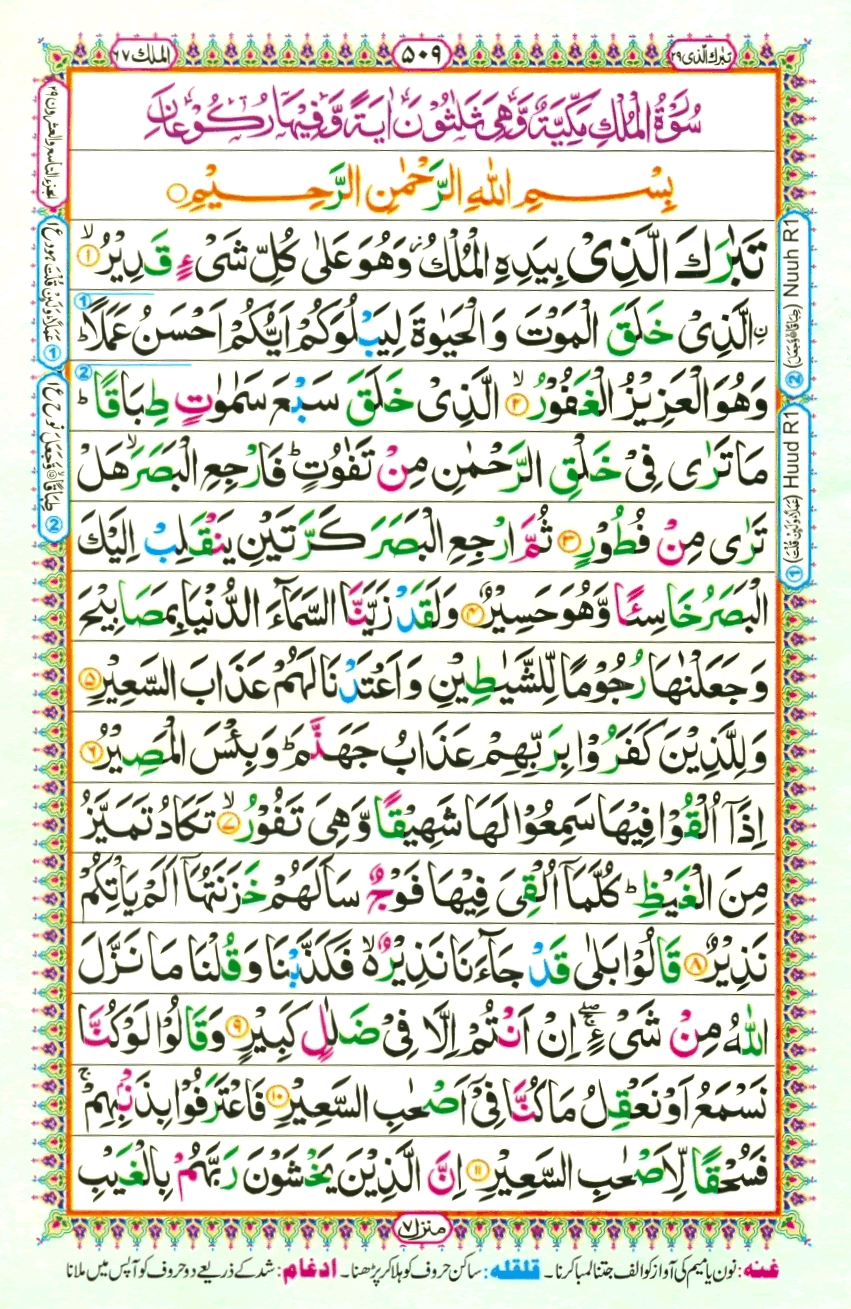 تبٰرك الذی ٢٩
٥٠٩
الملك ٦٧
سُوْرَةُ الْمُلْكِ مَكِّيَّةٌ وَّهِيَ ثَلٰثُوْنَ اٰيَةً وَّفِيْهَا رُكُوْعَانِ
بِسْمِ اللهِ الرَّحْمٰنِ الرَّحِيْمِ
تَبٰرَكَ الَّذِيْ بِيَدِهِ الْمُلْكُ ۫ وَهُوَ عَلٰى كُلِّ شَيْءٍ قَدِيْرُ ۙ﴿١﴾
ۨالَّذِيْ خَلَقَ الْمَوْتَ وَالْحَيٰوةَ لِيَبْلُوَكُمْ اَيُّكُمْ اَحْسَنُ عَمَلًا ؕ
وَهُوَ الْعَزِيْزُ الْغَفُوْرُ ۙ﴿٢﴾ الَّذِيْ خَلَقَ سَبْعَ سَمٰوٰتٍ طِبَاقًا ؕ
مَا تَرٰى فِيْ خَلْقِ الرَّحْمٰنِ مِنْ تَفٰوُتٍ ؕ فَارْجِعِ الْبَصَرَ ۙ هَلْ
تَرٰى مِنْ فُطُوْرٍ ﴿٣﴾ ثُمَّ ارْجِعِ الْبَصَرَ كَرَّتَيْنِ يَنْقَلِبْ اِلَيْكَ
الْبَصَرُ خَاسِئًا وَّهُوَ حَسِيْرٌ ﴿٤﴾ وَلَقَدْ زَيَّنَّا السَّمَآءَ الدُّنْيَا بِمَصَابِيْحَ
وَجَعَلْنٰهَا رُجُوْمًا لِّلشَّيٰطِيْنِ وَاَعْتَدْنَا لَهُمْ عَذَابَ السَّعِيْرِ ﴿٥﴾
وَلِلَّذِيْنَ كَفَرُوْا بِرَبِّهِمْ عَذَابُ جَهَنَّمَ ؕ وَبِئْسَ الْمَصِيْرُ ﴿٦﴾
اِذَآ اُلْقُوْا فِيْهَا سَمِعُوْا لَهَا شَهِيْقًا وَّهِيَ تَفُوْرُ ۙ﴿٧﴾ تَكَادُ تَمَيَّزُ
مِنَ الْغَيْظِ ؕ كُلَّمَآ اُلْقِيَ فِيْهَا فَوْجٌ سَاَلَهُمْ خَزَنَتُهَآ اَلَمْ يَاْتِكُمْ
نَذِيْرٌ ﴿٨﴾ قَالُوْا بَلٰى قَدْ جَآءَنَا نَذِيْرٌ ۙ فَكَذَّبْنَا وَقُلْنَا مَا نَزَّلَ
اللهُ مِنْ شَيْءٍ ۚۖ اِنْ اَنْتُمْ اِلَّا فِيْ ضَلٰلٍ كَبِيْرٍ ﴿٩﴾ وَقَالُوْا لَوْ كُنَّا
نَسْمَعُ اَوْ نَعْقِلُ مَا كُنَّا فِيْٓ اَصْحٰبِ السَّعِيْرِ ﴿١٠﴾ فَاعْتَرَفُوْا بِذَنْۢبِهِمْ ۚ
فَسُحْقًا لِّاَصْحٰبِ السَّعِيْرِ ﴿١١﴾ اِنَّ الَّذِيْنَ يَخْشَوْنَ رَبَّهُمْ بِالْغَيْبِ
منزل ٧
② (طباقا وجعل) Nuuh R1
① (عملا ولئن قلت) Huud R1
الجزء التاسع والعشرون ٢٩
① عملا ولئن قلت ھود ع ١
② طباقا وجعل نوح ع ١
غنه: نون یا میم کی آواز کو الف جتنا لمبا کرنا۔ قلقله: ساکن حروف کو ہلا کر پڑھنا۔ ادغام: شد کے ذریعے دو حروف کو آپس میں ملانا